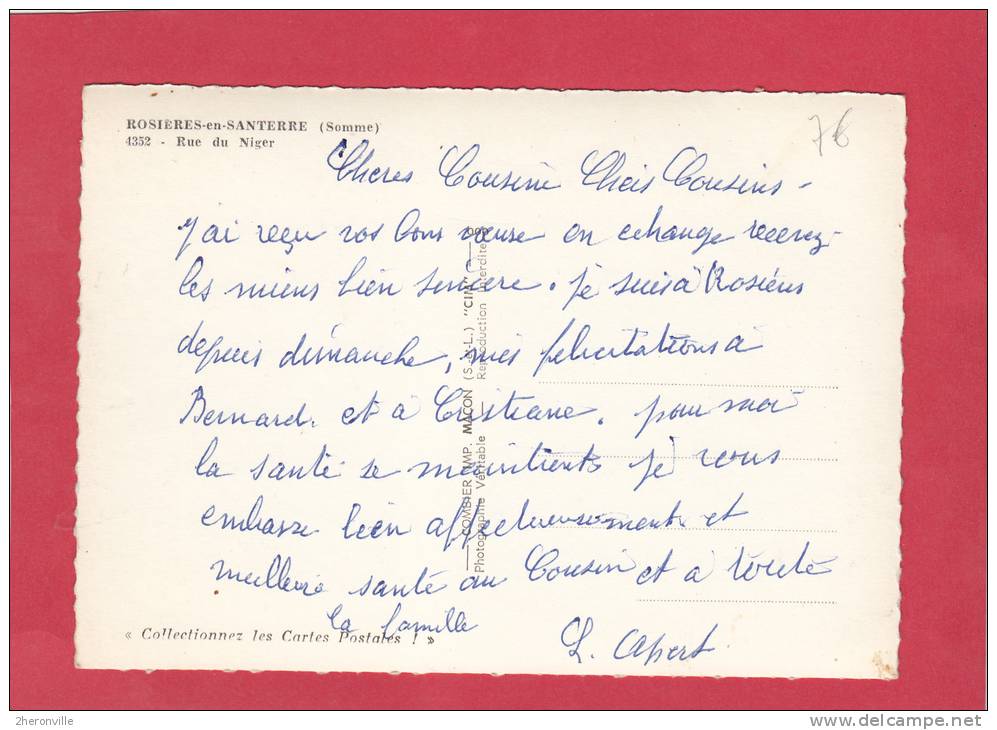 ROSIÈRES-en-SANTERRE (Somme)
4352 - Rue du Niger
7€
Cheres Cousine Cheis Cousins -
J'ai reçu vos bons vœuse en echange recevez
les miens bien sincere. je suis à Rosiéres
depuis dimanche, mes félicitations à
Bernard. et à Cristiane. pour moi
la santé se maintients je vous
embasse bien affectueusements et
meilleure santé au Cousin et a toute
la famille
L. Apert
COMBIER IMP. MACON (S.-&-L.) "CIM"
Photographie Véritable - Reproduction Interdite
« Collectionnez les Cartes Postales ! »
2heronville
delcampe.net